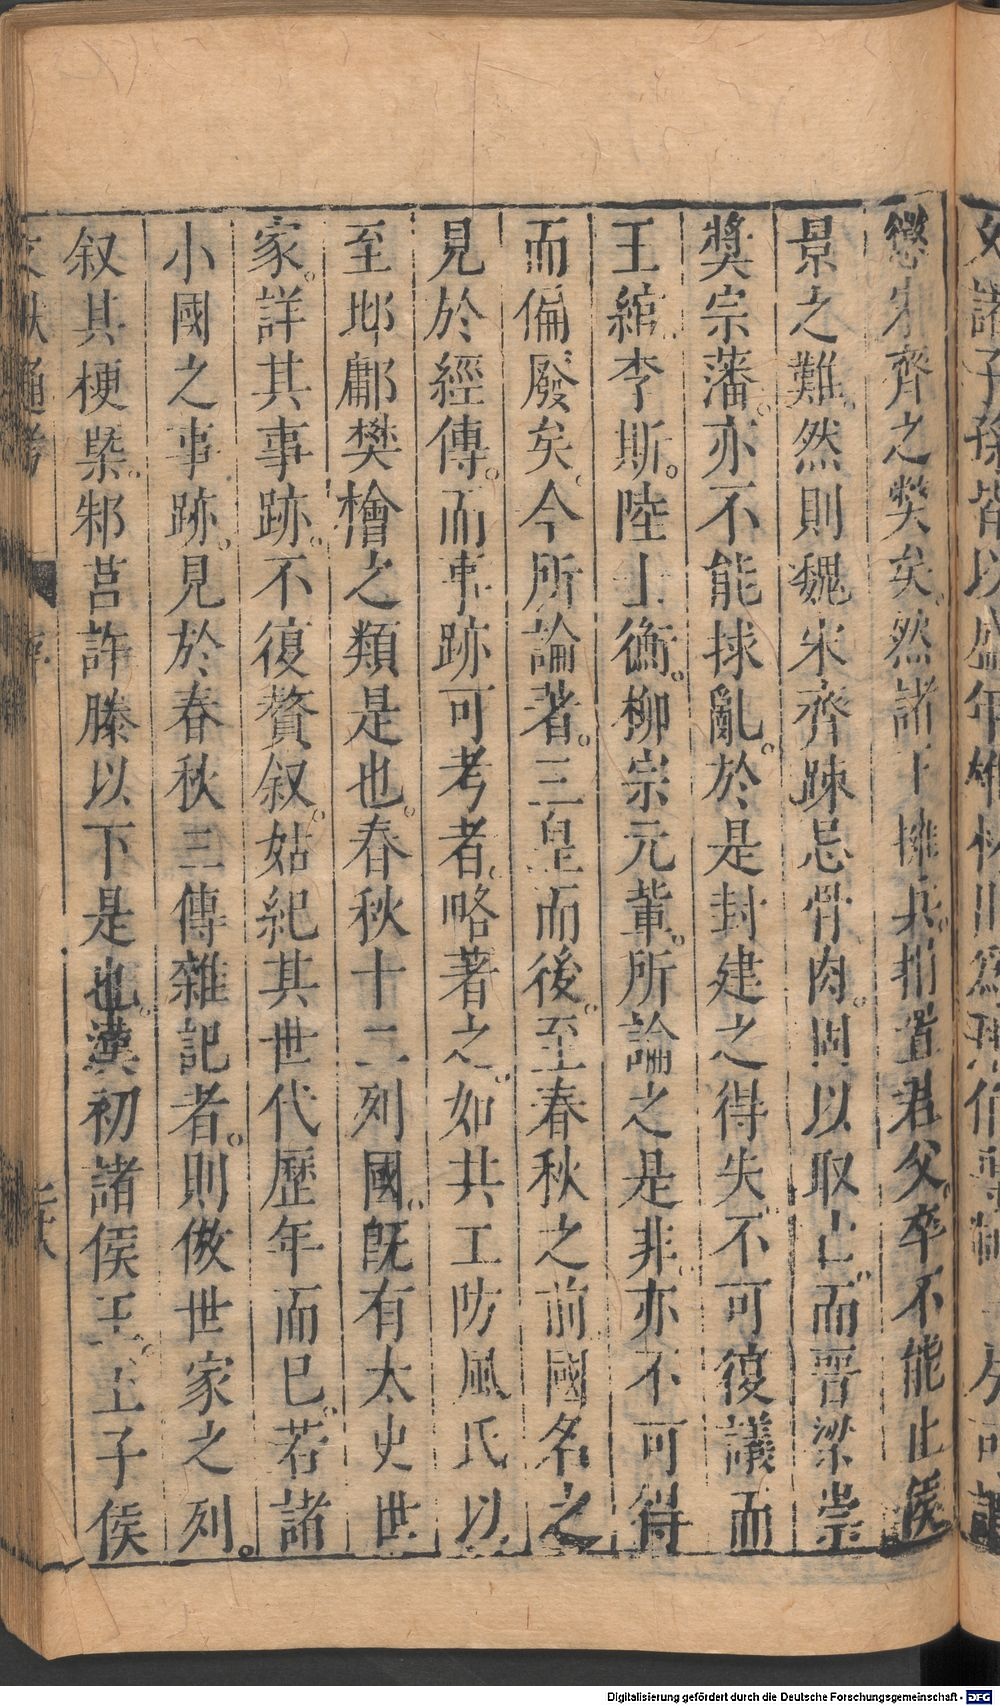 懲宋齊之獘矣。然諸王擁兵。捐置君父。卒不能止侯
景之難。然則魏宋齊疎忌骨肉。固以取亡。而晉梁崇
奬宗藩。亦不能捄亂。於是封建之得失。不可復議。而
王綰李斯。陸士衡。柳宗元輩。所論之是非。亦不可得
而偏廢矣。今所論著。三皇而後。至春秋之前。國名之
見於經傳。而事跡可考者。略著之。如共工防風氏以
至邶鄘樊檜之類是也。春秋十二列國。既有太史世
家。詳其事跡。不復贅叙。姑紀其世代歷年而已。若諸
小國之事跡。見於春秋三傳雜記者。則倣世家之列。
叙其梗槩。邾莒許滕以下是也。漢初諸侯王。王子侯
文獻通考 序
Digitalisierung gefördert durch die Deutsche Forschungsgemeinschaft - DFG